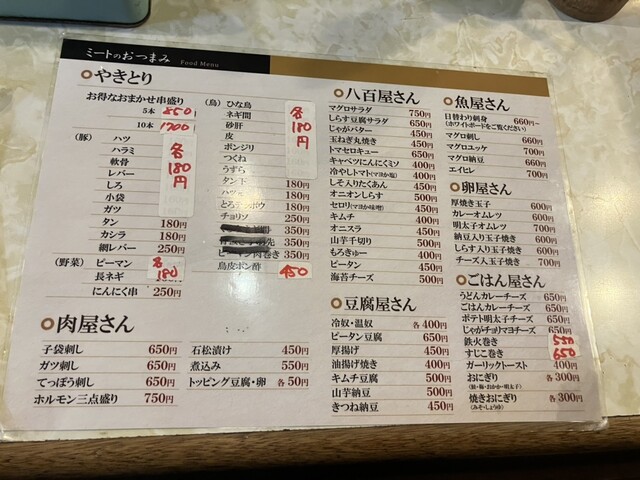 ミートのおつまみ Food Menu
やきとり
お得なおまかせ串盛り
5本 850
10本 1700
(豚) ハツ 各180円
ハラミ
軟骨
レバー
しろ
小袋
ガツ
タン 180円
カシラ 180円
網レバー 250円
(野菜) ピーマン 各180
長ネギ
にんにく串 250円
(鳥) ひな鳥 各180円
ネギ間
砂肝
皮
ボンジリ
つくね
うずら
タン下 180円
ハツモト 180円
180円
チョリソ 250円
350円
350円
350円
鳥皮ポン酢 450
肉屋さん
子袋刺し 650円
ガツ刺し 650円
てっぽう刺し 650円
ホルモン三点盛り 750円
石松漬け 450円
煮込み 550円
トッピング豆腐・卵 各50円
八百屋さん
マグロサラダ 750円
しらす豆腐サラダ 650円
じゃがバター 450円
玉ねぎ丸焼き 450円
トマセロキュー 650円
キャベツにんにくミソ 400円
冷やしトマト(マヨか塩) 400円
しそ入りたくあん 450円
オニオンしらす 500円
セロリ(マヨか味噌) 400円
キムチ 400円
オニスラ 450円
山芋千切り 500円
もろきゅー 400円
ピータン 450円
海苔チーズ 500円
豆腐屋さん
冷奴・温奴 各400円
ピータン豆腐 650円
厚揚げ 450円
油揚げ焼き 400円
キムチ豆腐 500円
山芋納豆 500円
きつね納豆 450円
魚屋さん
日替わり刺身 660円~
(ホワイトボードをご覧ください)
マグロ刺し 660円~
マグロユッケ 700円
マグロ納豆 660円
エイヒレ 700円
卵屋さん
厚焼き玉子 600円
カレーオムレツ 600円
明太子オムレツ 700円
納豆入り玉子焼き 700円
しらす入り玉子焼き 700円
チーズ入玉子焼き 700円
ごはん屋さん
うどんカレーチーズ 650円
ごはんカレーチーズ 650円
ポテト明太子チーズ 650円
じゃがチョリマヨチーズ 650円
鉄火巻き 550
すじこ巻き 650
ガーリックトースト 400円
おにぎり 各300円
(鮭・梅・おかか・明太子)
焼きおにぎり 各300円
(みそ・しょうゆ)